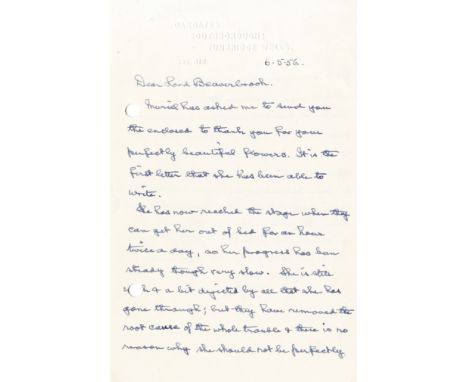 6-5-56.
Dear Lord Beaverbrook.
Muriel has asked me to send you
the enclosed to thank you for your
perfectly beautiful flowers. It is the
first letter that she has been able to
write.
She has now reached the stage when they
can get her out of bed for an hour
twice a day, so her progress has been
steady though very slow. She is still
& a bit dejected by all that she has
gone through; but they have removed the
root cause of the whole trouble & there is no
reason why she should not be perfectly